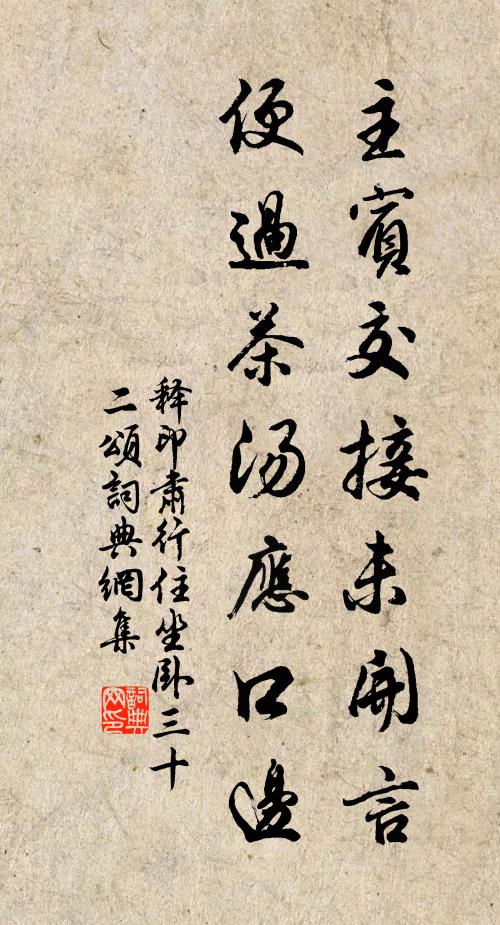 主賓交接未開言
便過茶湯應口邊
释印肅行住坐臥三十
二頌詞典網集
詞典
网印